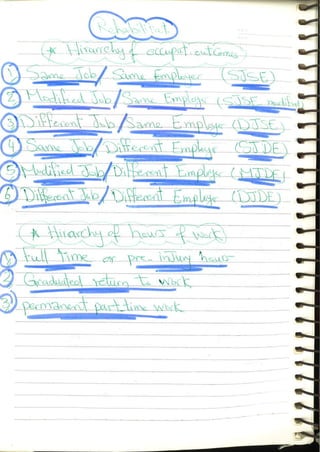 Rehabilitat
* Hirarchy of occupat. outcomes
1 Same Job / Same Employer (SJSE)
2 Modified Job / Same Employe (SJSE modified)
3 Different Job / Same Employe (DJSE)
4 Same Job / Different Employe (SJDE)
5 Modified Job / Different Employe (MJDE)
6 Different Job / Different Employe (DJDE)
* Hirarchy of hours of work
1 Full time or pre-injury hours
2 Graduated return to work
3 permanent part time work